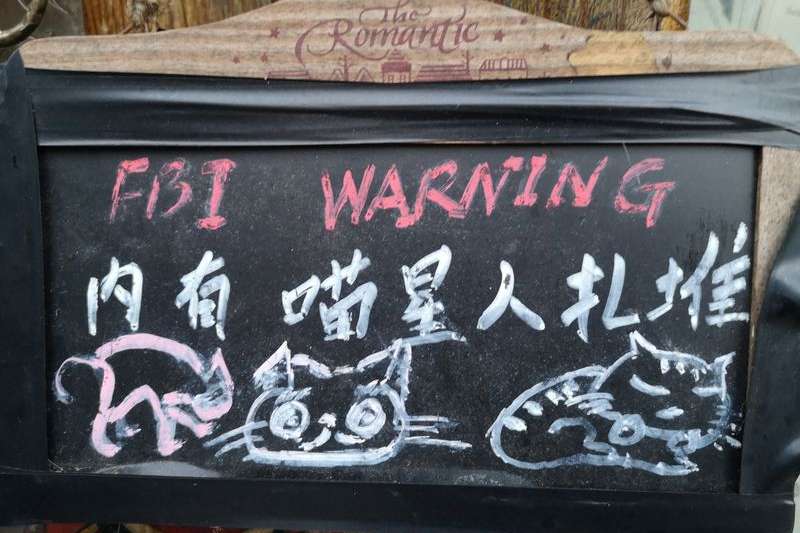 The
Romantic
FBI WARNING
内有 喵星人扎堆